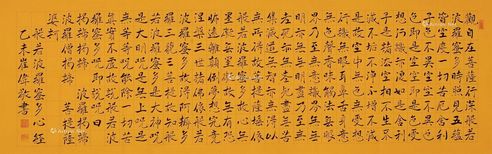 觀自在菩薩行深般若
波羅蜜多時照見五蘊
皆空度一切苦厄舍利
子色不異空空不異色
色即是空空即是色受
想行識亦復如是舍利
子是諸法空相不生不
滅不垢不淨不增不減
是故空中無色無受想
行識無眼耳鼻舌身意
無色聲香味觸法無眼
界乃至無意識界無無
明亦無無明盡乃至無
老死亦無老死盡無苦
集滅道無智亦無得以
無所得故菩提薩埵依
般若波羅蜜多故心無
罣礙無罣礙故無有恐
怖遠離顛倒夢想究竟
涅槃三世諸佛依般若
波羅蜜多故得阿耨多
羅三藐三菩提故知般
若波羅蜜多是大神咒
是大明咒是無上咒是
無等等咒能除一切苦
真實不虛故說般若波
羅蜜多咒即說咒曰
揭諦揭諦 波羅揭諦
波羅僧揭諦 菩提薩
婆訶
般若波羅蜜多心經
乙未崔偉敬書